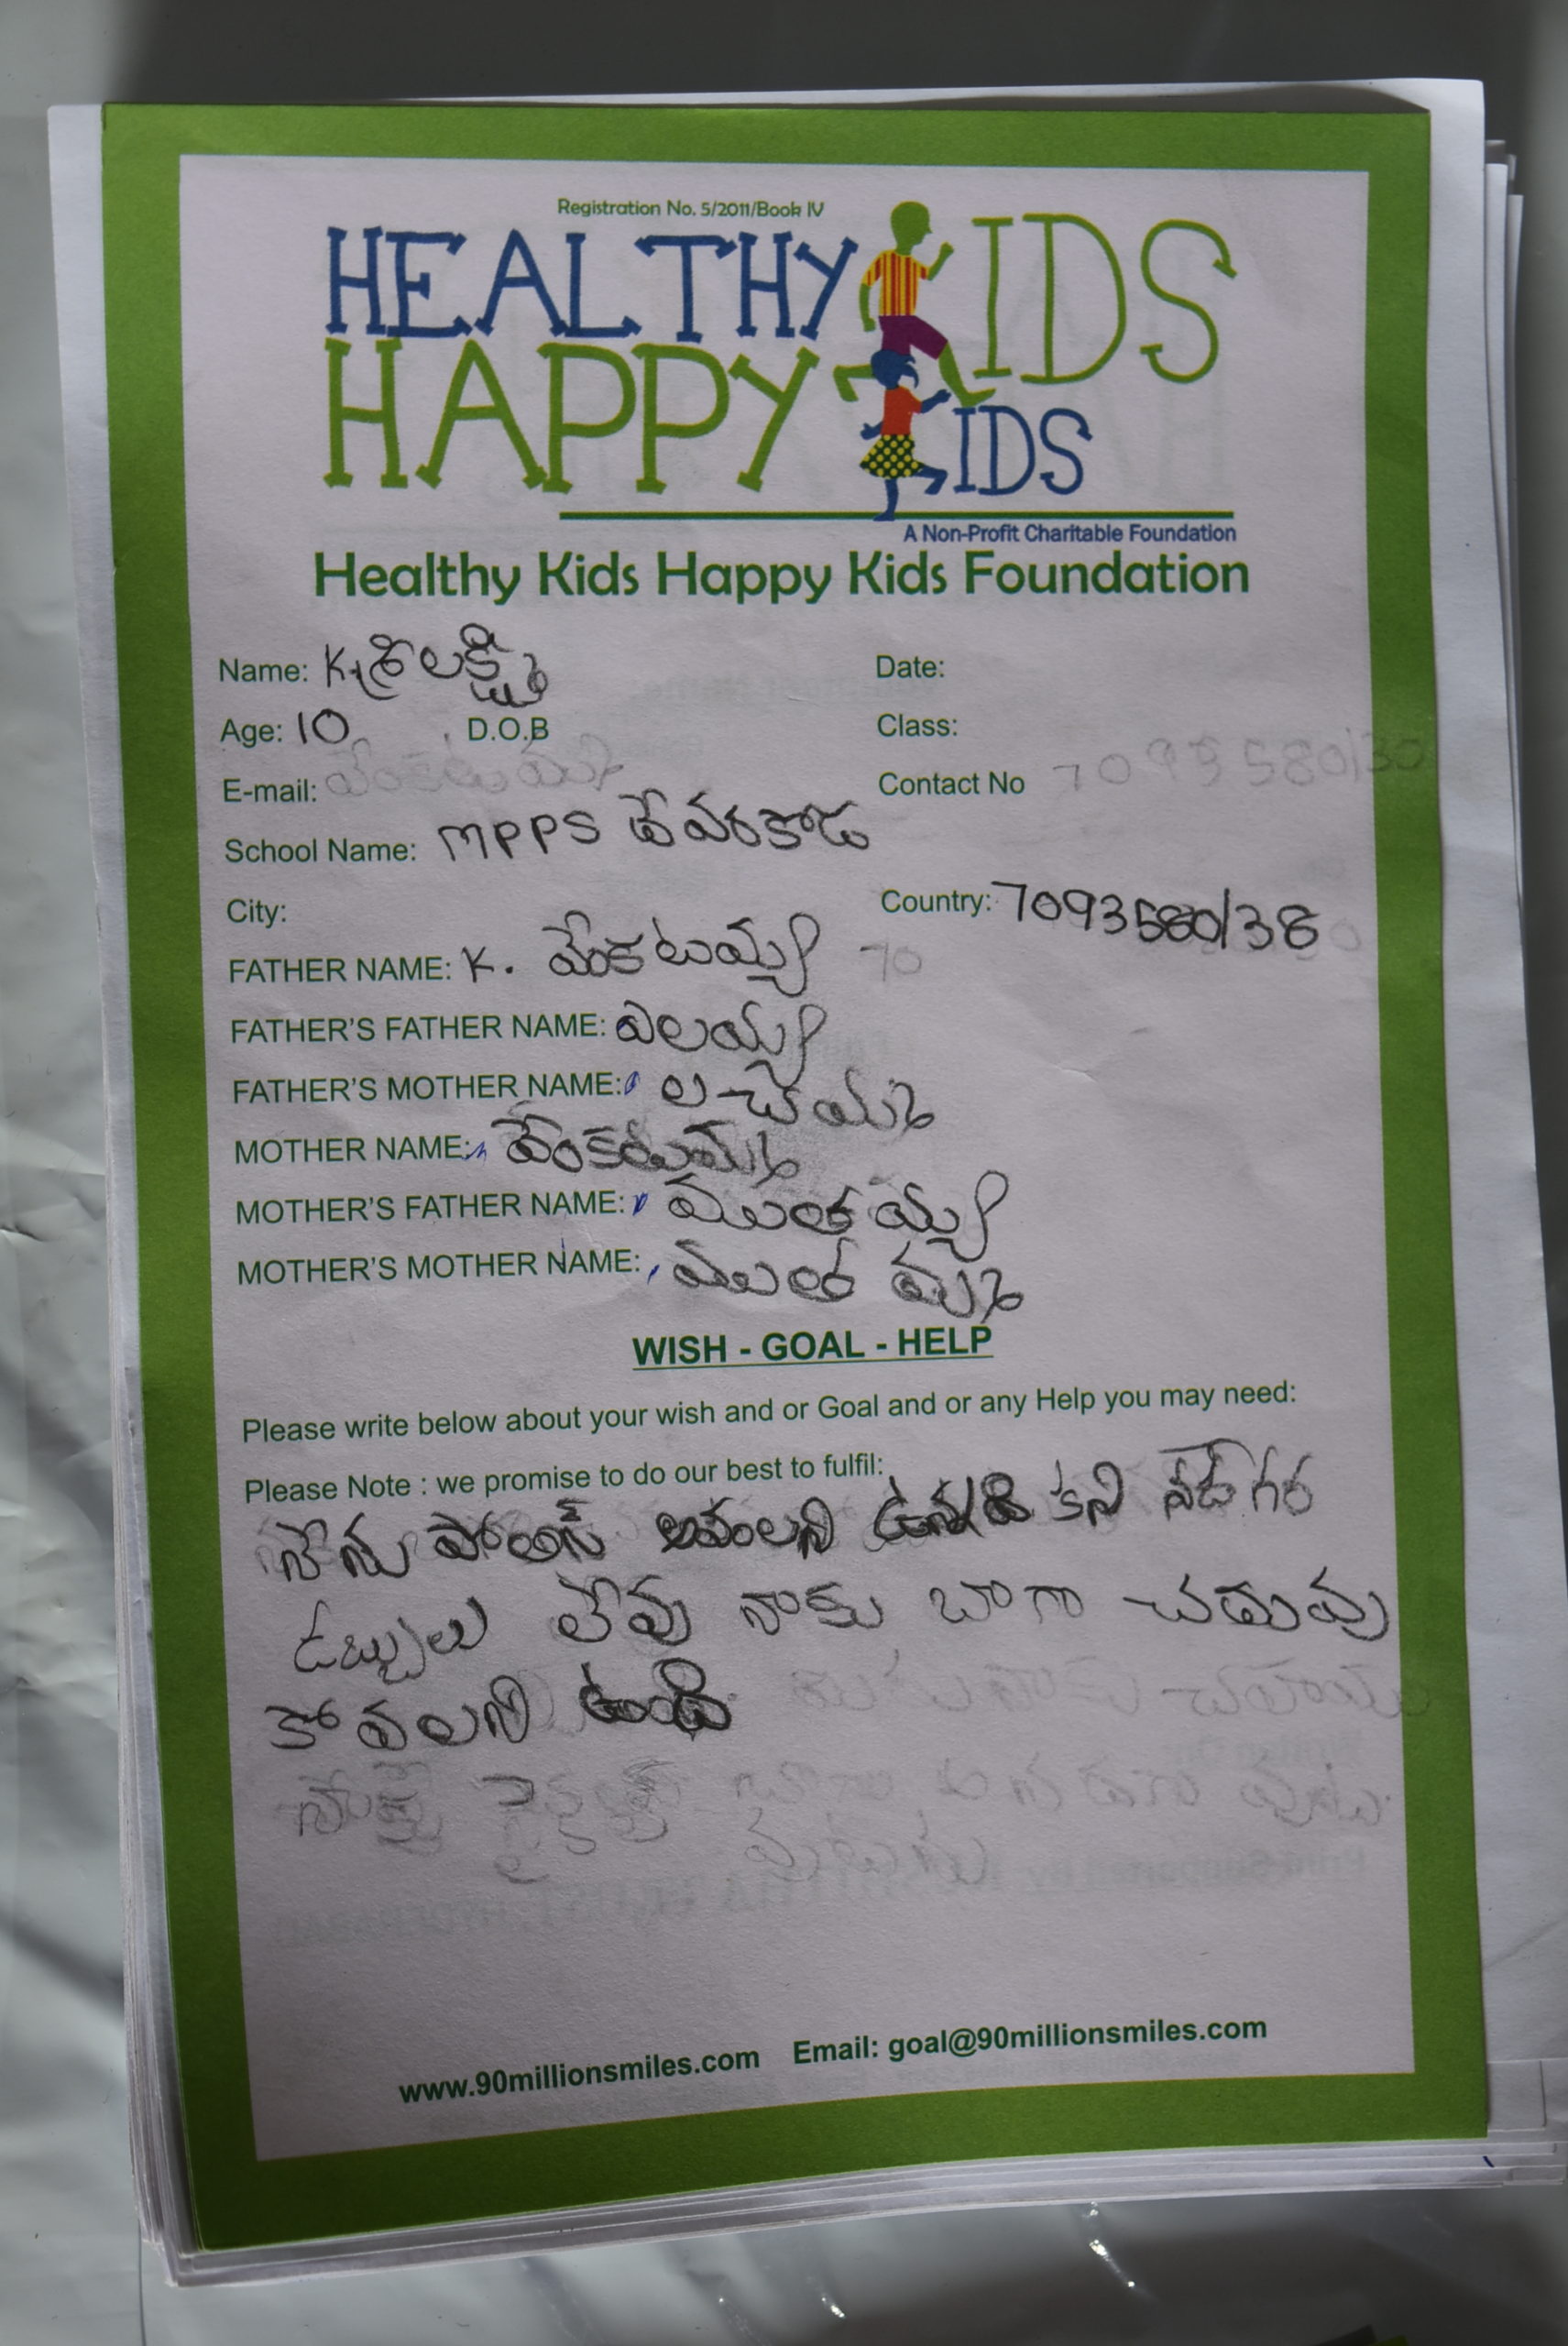 Registration No. 5/2011/Book IV
HEALTHY KIDS
HAPPY KIDS
A Non-Profit Charitable Foundation
Healthy Kids Happy Kids Foundation
Name: K. శ్రీలక్ష్మి Date:
Age: 10 D.O.B Class:
E-mail: వెంకటమ్మ Contact No
School Name: MPPS దేవరకొండ
City: Country: 7093580138
FATHER NAME: K. వేంకటయ్య 70
FATHER'S FATHER NAME: ఎలయ్య
FATHER'S MOTHER NAME: లచమ్మ
MOTHER NAME: వెంకటమ్మ
MOTHER'S FATHER NAME: ముతయ్య
MOTHER'S MOTHER NAME: ముతమ్మ
WISH - GOAL - HELP
Please write below about your wish and or Goal and or any Help you may need:
Please Note : we promise to do our best to fulfil:
నేను పోలిస్ అవలని కని
డబ్బులు లేవు నాకు బాగా చదువు
కోవలని ఉంది
www.90millionsmiles.com Email: goal@90millionsmiles.com